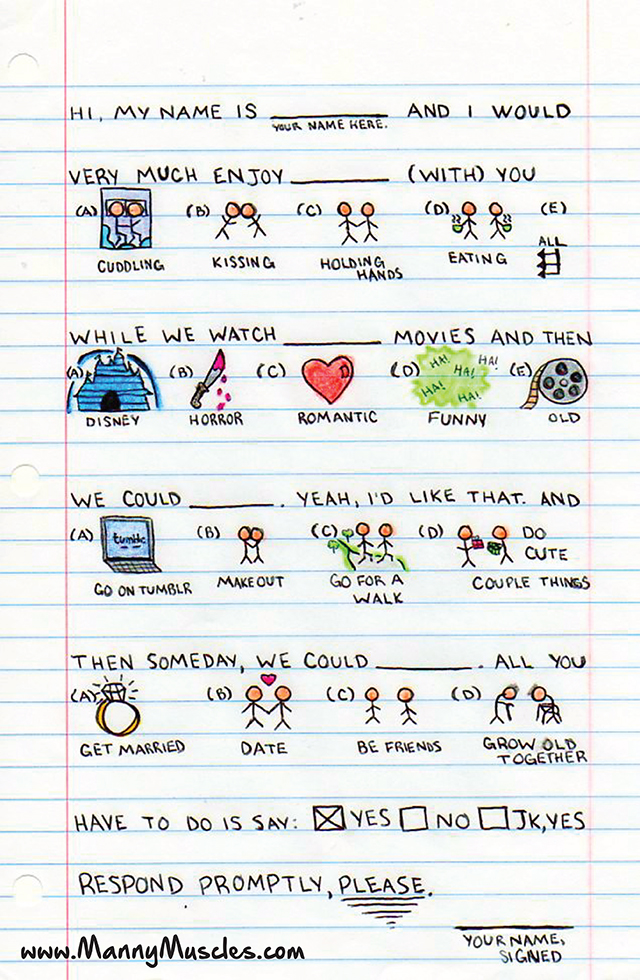 HI, MY NAME IS ________ AND I WOULD
YOUR NAME HERE.
VERY MUCH ENJOY ________ (WITH) YOU
(A) (B) (C) (D) (E)
CUDDLING KISSING HOLDING HANDS EATING ALL
WHILE WE WATCH ________ MOVIES AND THEN
(A) (B) (C) (D) HA! HA! HA! HA! HA! (E)
DISNEY HORROR ROMANTIC FUNNY OLD
WE COULD ________. YEAH, I'D LIKE THAT. AND
(A) tumblr (B) (C) (D) DO CUTE
GO ON TUMBLR MAKEOUT GO FOR A WALK COUPLE THINGS
THEN SOMEDAY, WE COULD ________. ALL YOU
(A) (B) (C) (D)
GET MARRIED DATE BE FRIENDS GROW OLD TOGETHER
HAVE TO DO IS SAY: ☒ YES ☐ NO ☐ JK, YES
RESPOND PROMPTLY, PLEASE.
YOUR NAME,
SIGNED
www.MannyMuscles.com